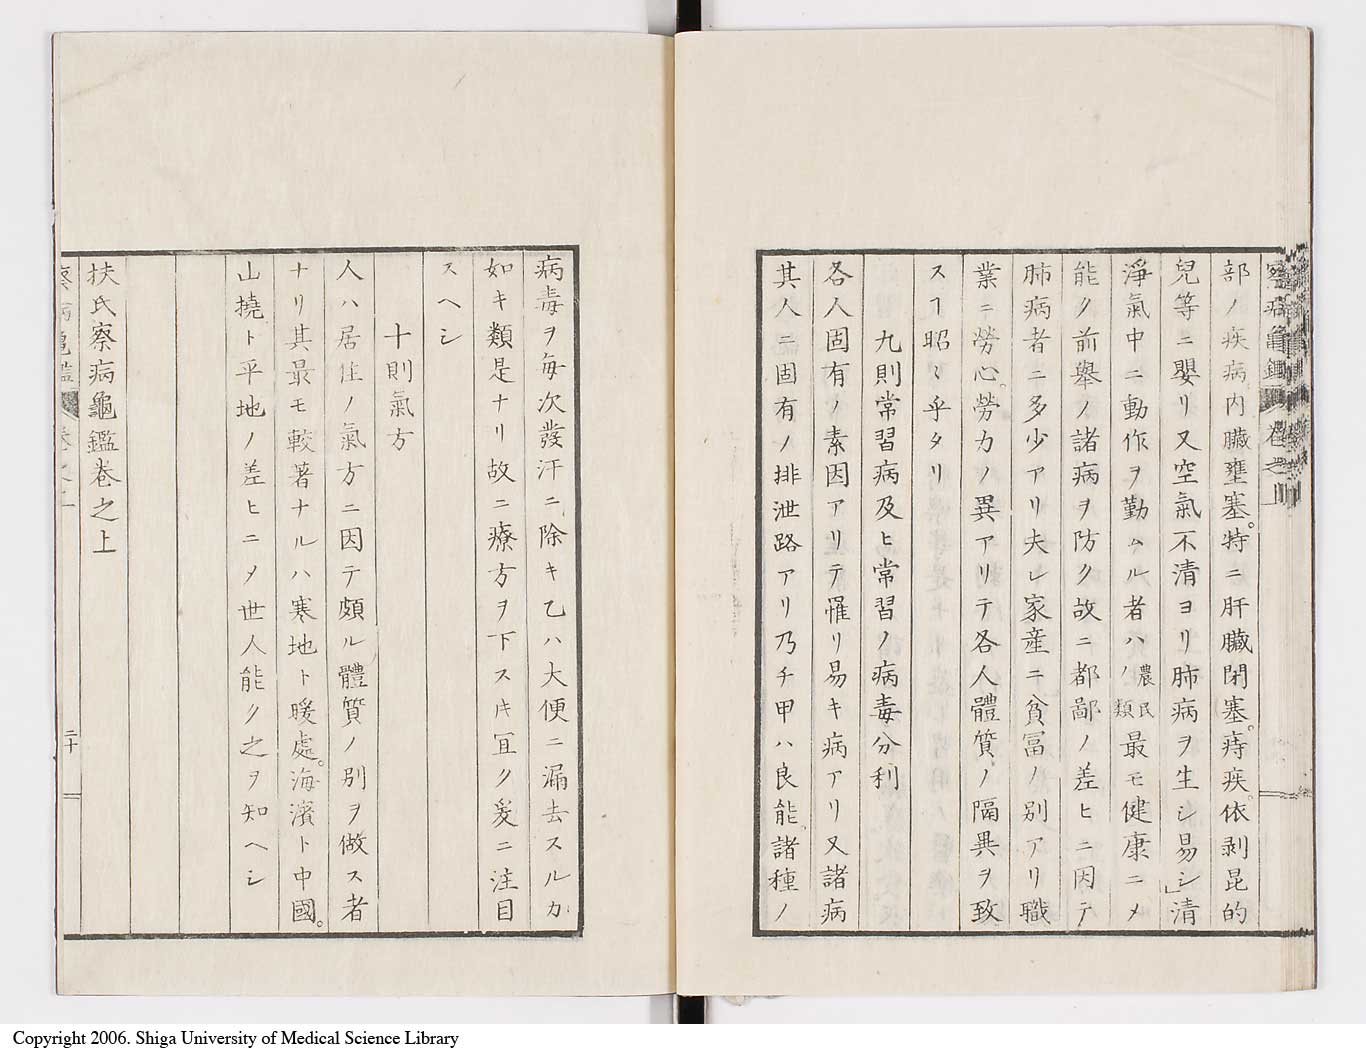 部ノ疾病内臓壅塞。特ニ肝臓閉塞。痔疾。依剥昆的
兒等ニ嬰リ又空氣不清ヨリ肺病ヲ生シ易シ」清
淨氣中ニ動作ヲ勤ムル者ハ農民ノ類最モ健康ニメ
能ク前舉ノ諸病ヲ防ク故ニ都鄙ノ差ヒニ因テ
肺病者ニ多少アリ夫レ家産ニ貧冨ノ別アリ職
業ニ勞心。勞力ノ異アリテ各人體質ノ隔異ヲ致
スヿ昭々乎タリ
九則常習病及ヒ常習ノ病毒分利
各人固有ノ素因アリテ罹リ易キ病アリ又諸病
其人ニ固有ノ排泄路アリ乃チ甲ハ良能。諸種ノ
病毒ヲ毎次發汗ニ除キ乙ハ大便ニ漏去スルカ
如キ類是ナリ故ニ療方ヲ下スキ冝ク爰ニ注目
スヘシ
十則氣方
人ハ居住ノ氣方ニ因テ頗ル體質ノ別ヲ做ス者
ナリ其最モ較著ナルハ寒地ト暖處。海濱ト中國。
山撓ト平地ノ差ヒニメ世人能ク之ヲ知ヘシ
扶氏察病龜鑑卷之上
二十
Copyright 2006. Shiga University of Medical Science Library